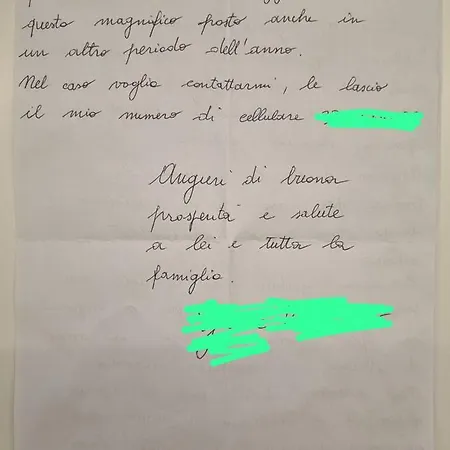 questo magnifico posto anche in
un altro periodo dell'anno.
Nel caso voglia contattarmi, le lascio
il mio numero di cellulare
Auguri di buona
prosperità e salute
a lei e tutta la
famiglia.